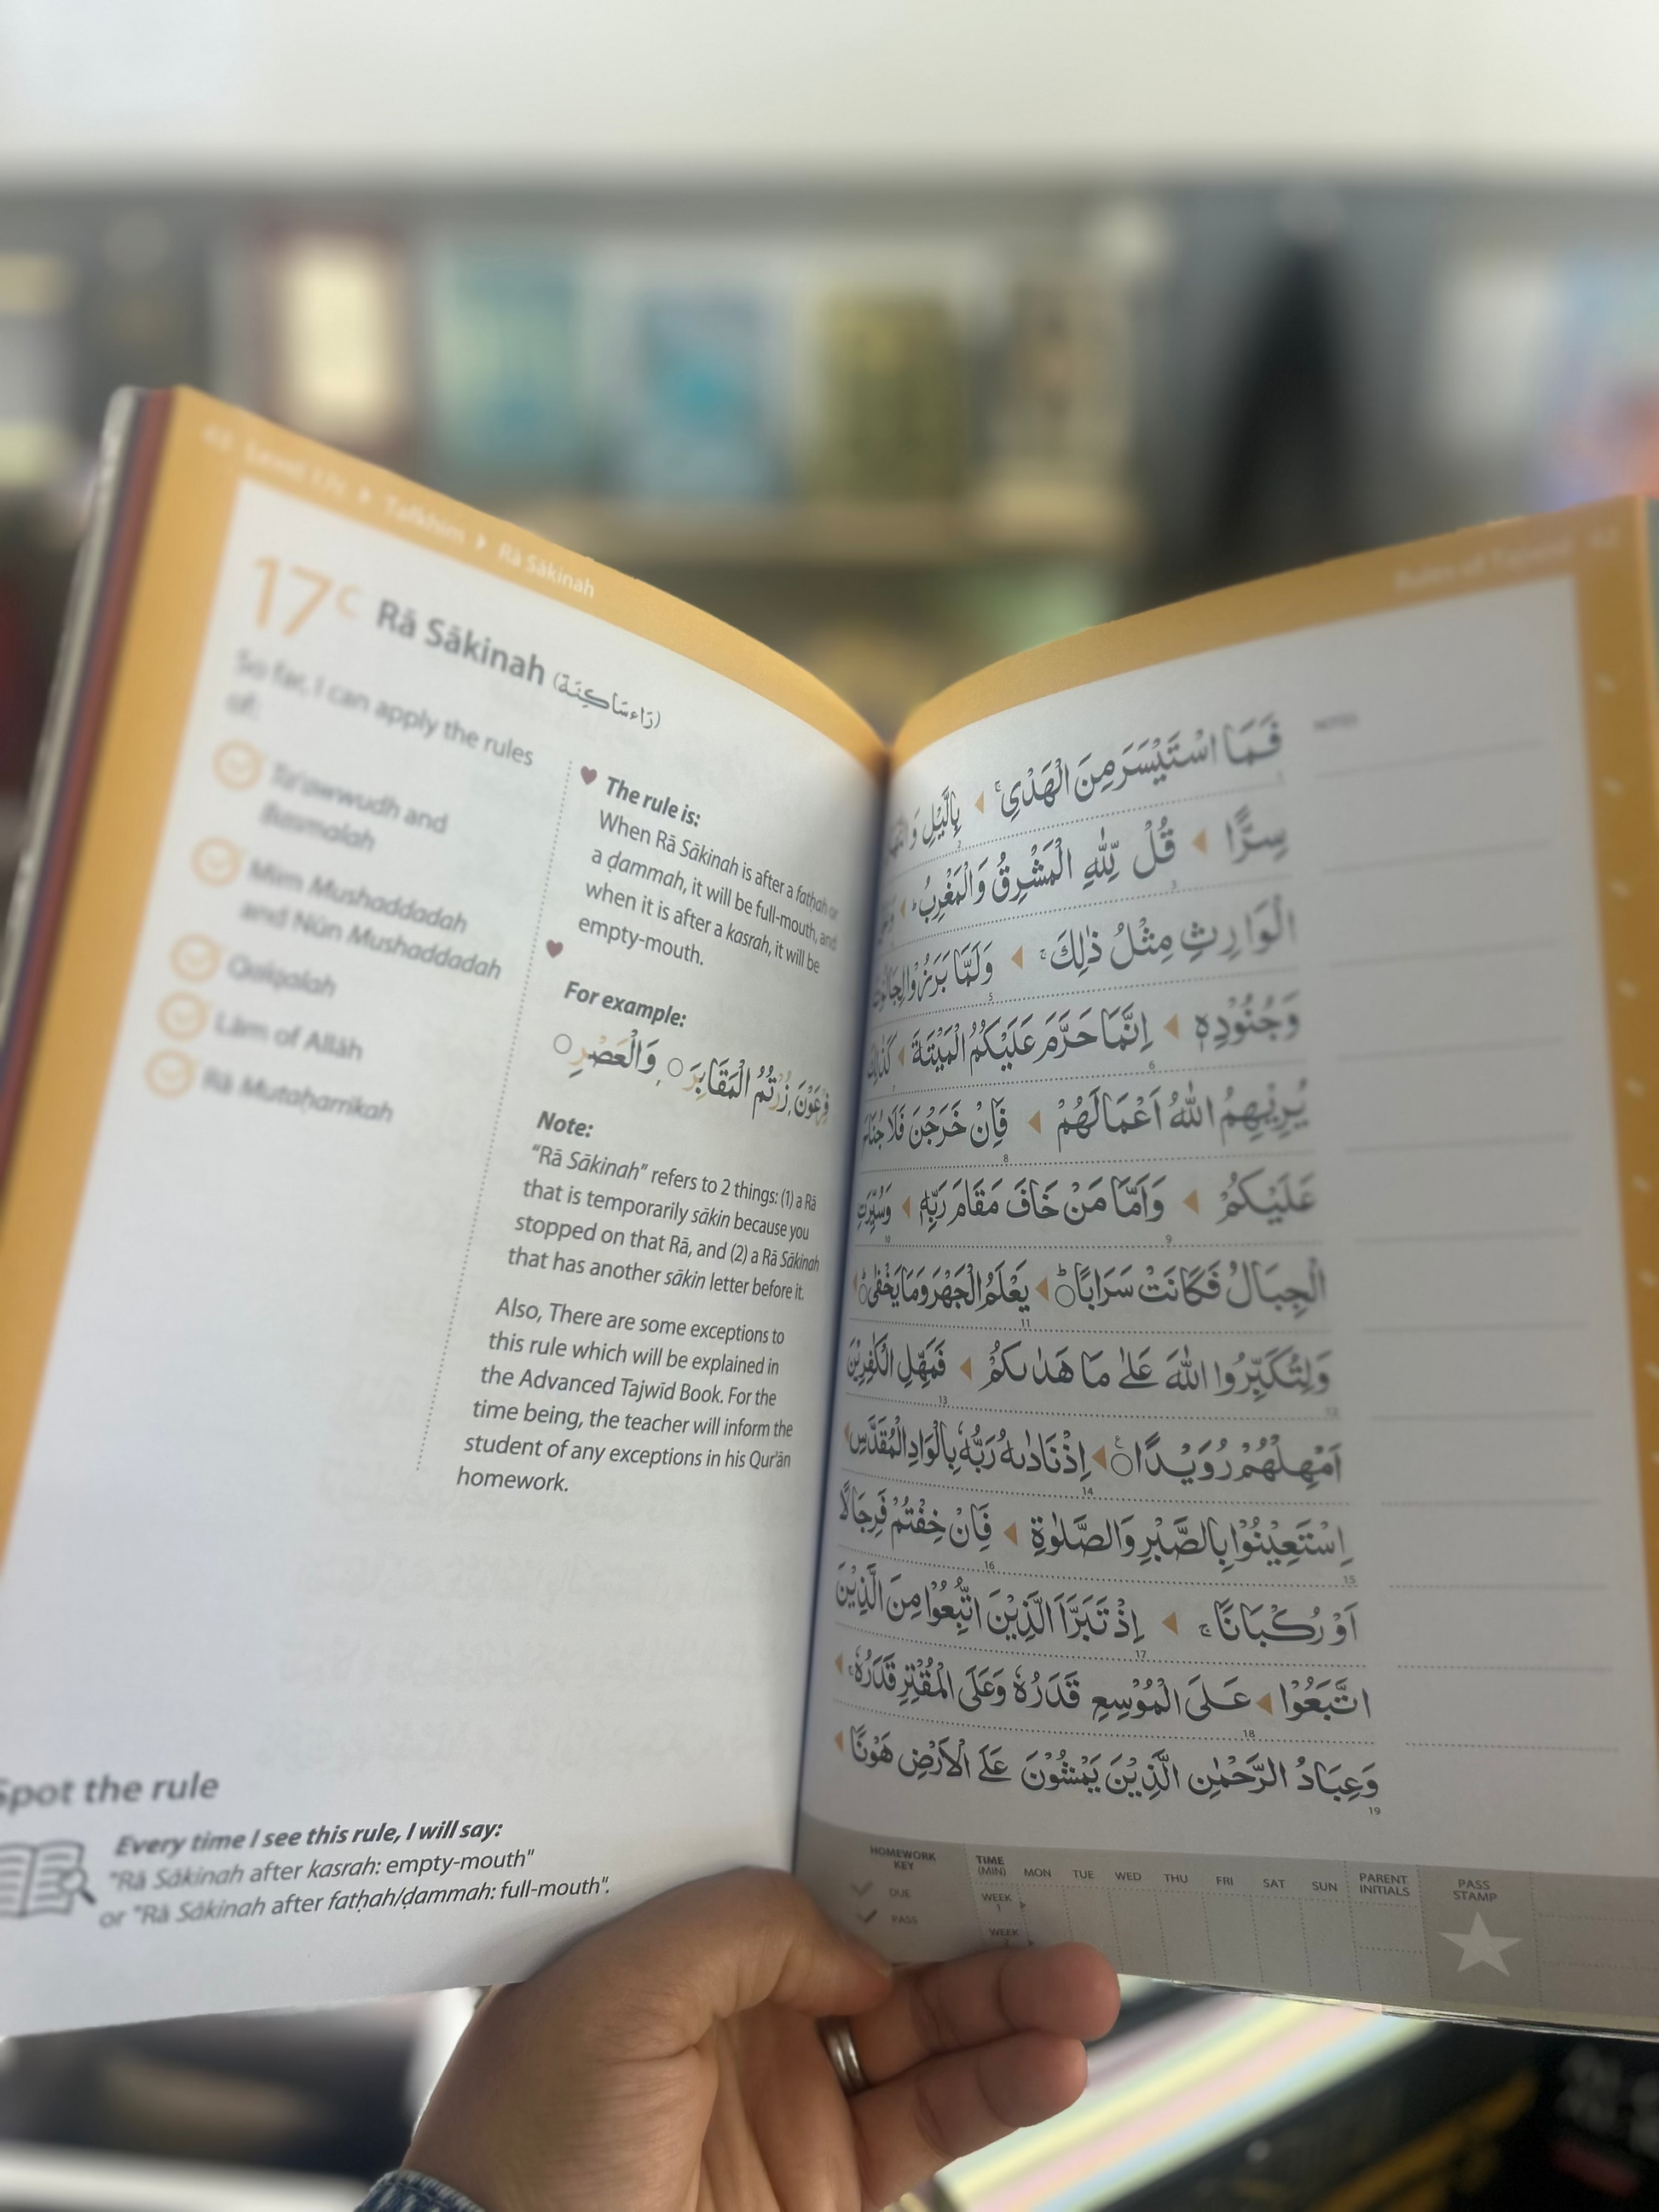 Level 17c ▸ Tafkhim ▸ Rā Sākinah
17c Rā Sākinah (رَاء سَاكِنَة)
So far, I can apply the rules
of:
Ta'awwudh and
Basmalah
Mīm Mushaddadah
and Nūn Mushaddadah
Qalqalah
Lām of Allāh
Rā Mutaḥarrikah
The rule is:
When Rā Sākinah is after a fatḥah or
a ḍammah, it will be full-mouth, and
when it is after a kasrah, it will be
empty-mouth.
For example:
فِرْعَوْنَ, زُرْتُمُ الْمَقَابِرَ ○, وَالْعَصْرِ ○
Note:
"Rā Sākinah" refers to 2 things: (1) a Rā
that is temporarily sākin because you
stopped on that Rā, and (2) a Rā Sākinah
that has another sākin letter before it.
Also, There are some exceptions to
this rule which will be explained in
the Advanced Tajwīd Book. For the
time being, the teacher will inform the
student of any exceptions in his Qur'ān
homework.
Spot the rule
Every time I see this rule, I will say:
"Rā Sākinah after kasrah: empty-mouth"
or "Rā Sākinah after fatḥah/ḍammah: full-mouth".
Rules of Tajwīd
NOTES
فَمَا اسْتَيْسَرَ مِنَ الْهَدْيِ ۚ بِالَّيْلِ
1 2
سِرًّا قُلْ لِّلّٰهِ الْمَشْرِقُ وَالْمَغْرِبُ ؕ
3
الْوَارِثِ مِثْلُ ذٰلِكَ ۚ وَلَمَّا بَرَزُوْا
5
وَجُنُوْدِهٖ اِنَّمَا حَرَّمَ عَلَيْكُمُ الْمَيْتَةَ
6
يُرِيْهِمُ اللّٰهُ اَعْمَالَهُمْ فَاِنْ خَرَجْنَ فَلَا جُنَاحَ
8
عَلَيْكُمْ وَاَمَّا مَنْ خَافَ مَقَامَ رَبِّهٖ وَسُيِّرَتِ
9 10
الْجِبَالُ فَكَانَتْ سَرَابًا ○ؕ يَعْلَمُ الْجَهْرَ وَمَا يَخْفٰى ○ؕ
11
وَلِتُكَبِّرُوا اللّٰهَ عَلٰى مَا هَدٰىكُمْ فَمَهِّلِ الْكٰفِرِيْنَ
12 13
اَمْهِلْهُمْ رُوَيْدًا ○ۧ اِذْ نَادٰىهُ رَبُّهٗ بِالْوَادِ الْمُقَدَّسِ
14
اِسْتَعِيْنُوْا بِالصَّبْرِ وَالصَّلٰوةِ فَاِنْ خِفْتُمْ فَرِجَالًا
15 16
اَوْ رُكْبَانًا ۚ اِذْ تَبَرَّاَ الَّذِيْنَ اتُّبِعُوْا مِنَ الَّذِيْنَ
17
اتَّبَعُوْا عَلَى الْمُوْسِعِ قَدَرُهٗ وَعَلَى الْمُقْتِرِ قَدَرُهٗ ۚ
18
وَعِبَادُ الرَّحْمٰنِ الَّذِيْنَ يَمْشُوْنَ عَلَى الْاَرْضِ هَوْنًا
19
HOMEWORK
KEY
DUE
PASS
TIME
(MIN) MON TUE WED THU FRI SAT SUN PARENT
INITIALS PASS
STAMP
WEEK
1
WEEK